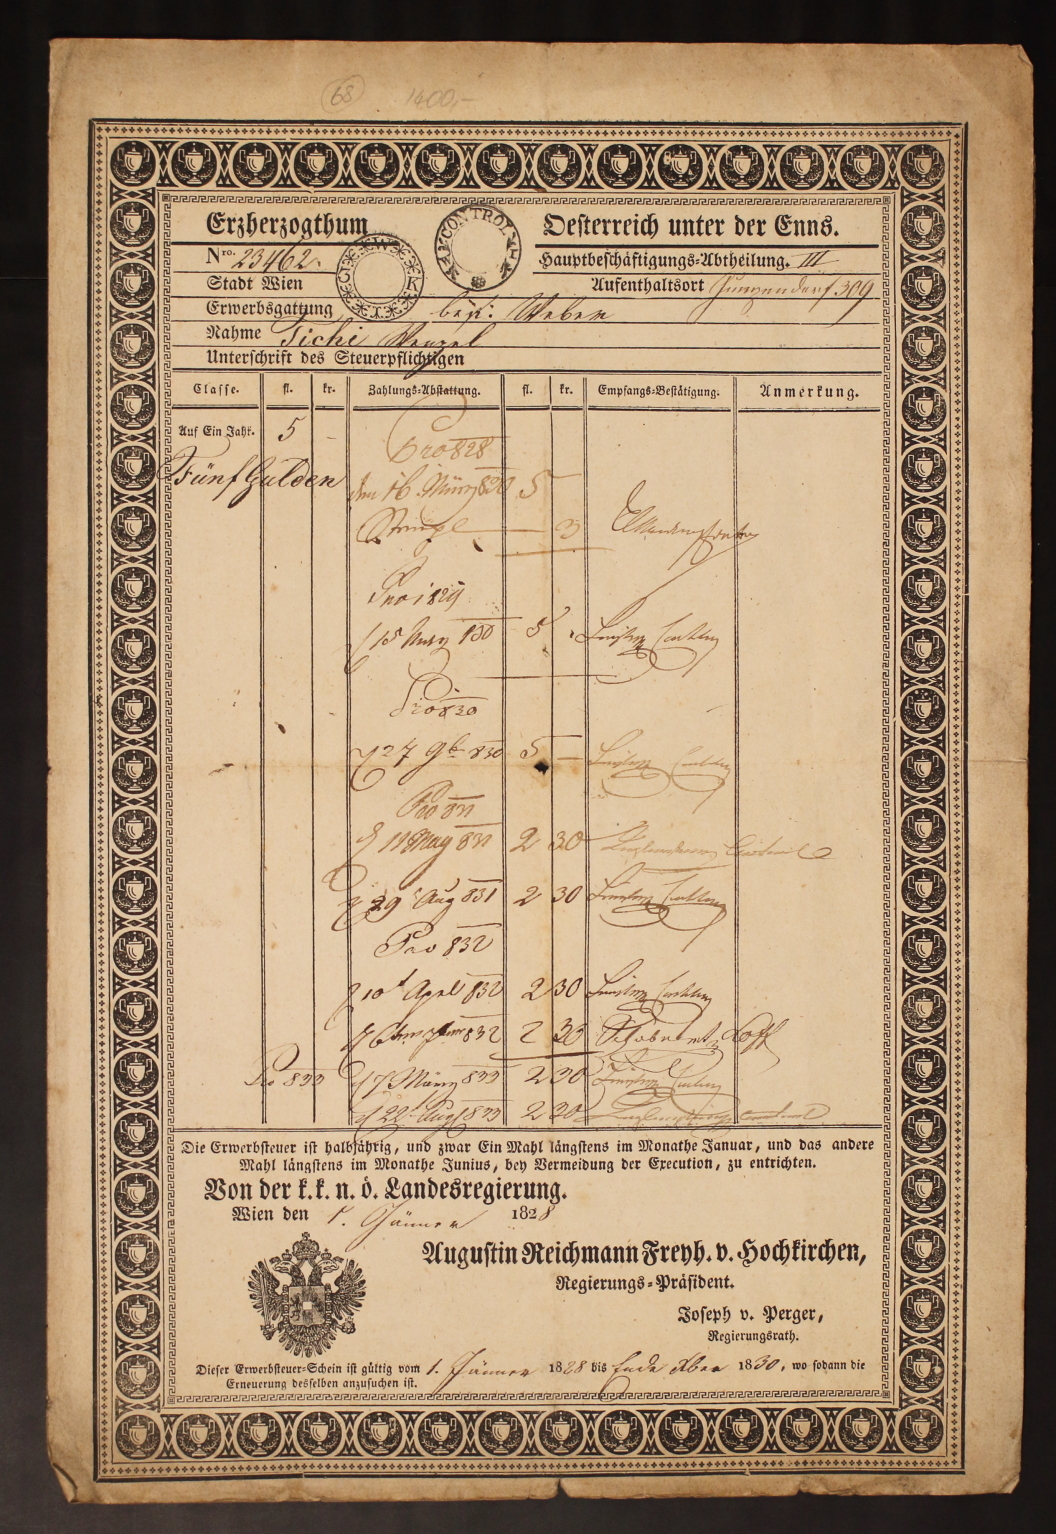 68 1400,-
Erzherzogthum Oesterreich unter der Enns.
Nro. 23462. Hauptbeschäftigungs-Abtheilung. III
CONTROLLE
Stadt Wien Aufenthaltsort 309
Erwerbsgattung bef: Weber
Nahme Tichi Wenzel
Unterschrift des Steuerpflichtigen
Classe. fl. kr. Zahlungs-Abstattung. fl. kr. Empfangs-Bestätigung. Anmerkung.
Auf Ein Jahr. 5 –
Pro 828
Fünf Gulden den 16 März 5
3
Pro 1829
15 März 830 5
Pro 830
27 9b 830 5 –
Pro 831
11 May 831 2 30
29 Aug 831 2 30
Pro 832
10 April 832 2 30
832 2 30
Pro 833 7 März 833 2 30
22 Aug 833 2 30
Die Erwerbsteuer ist halbjährig, und zwar Ein Mahl längstens im Monathe Januar, und das andere
Mahl längstens im Monathe Junius, bey Vermeidung der Execution, zu entrichten.
Von der k. k. n. ö. Landesregierung.
Wien den 1. Jänner 1828
Augustin Reichmann Freyh. v. Hochkirchen,
Regierungs-Präsident.
Joseph v. Perger,
Regierungsrath.
Dieser Erwerbsteuer-Schein ist gültig vom 1. Jänner 1828 bis Ende Xber 1830, wo sodann die
Erneuerung desselben anzusuchen ist.